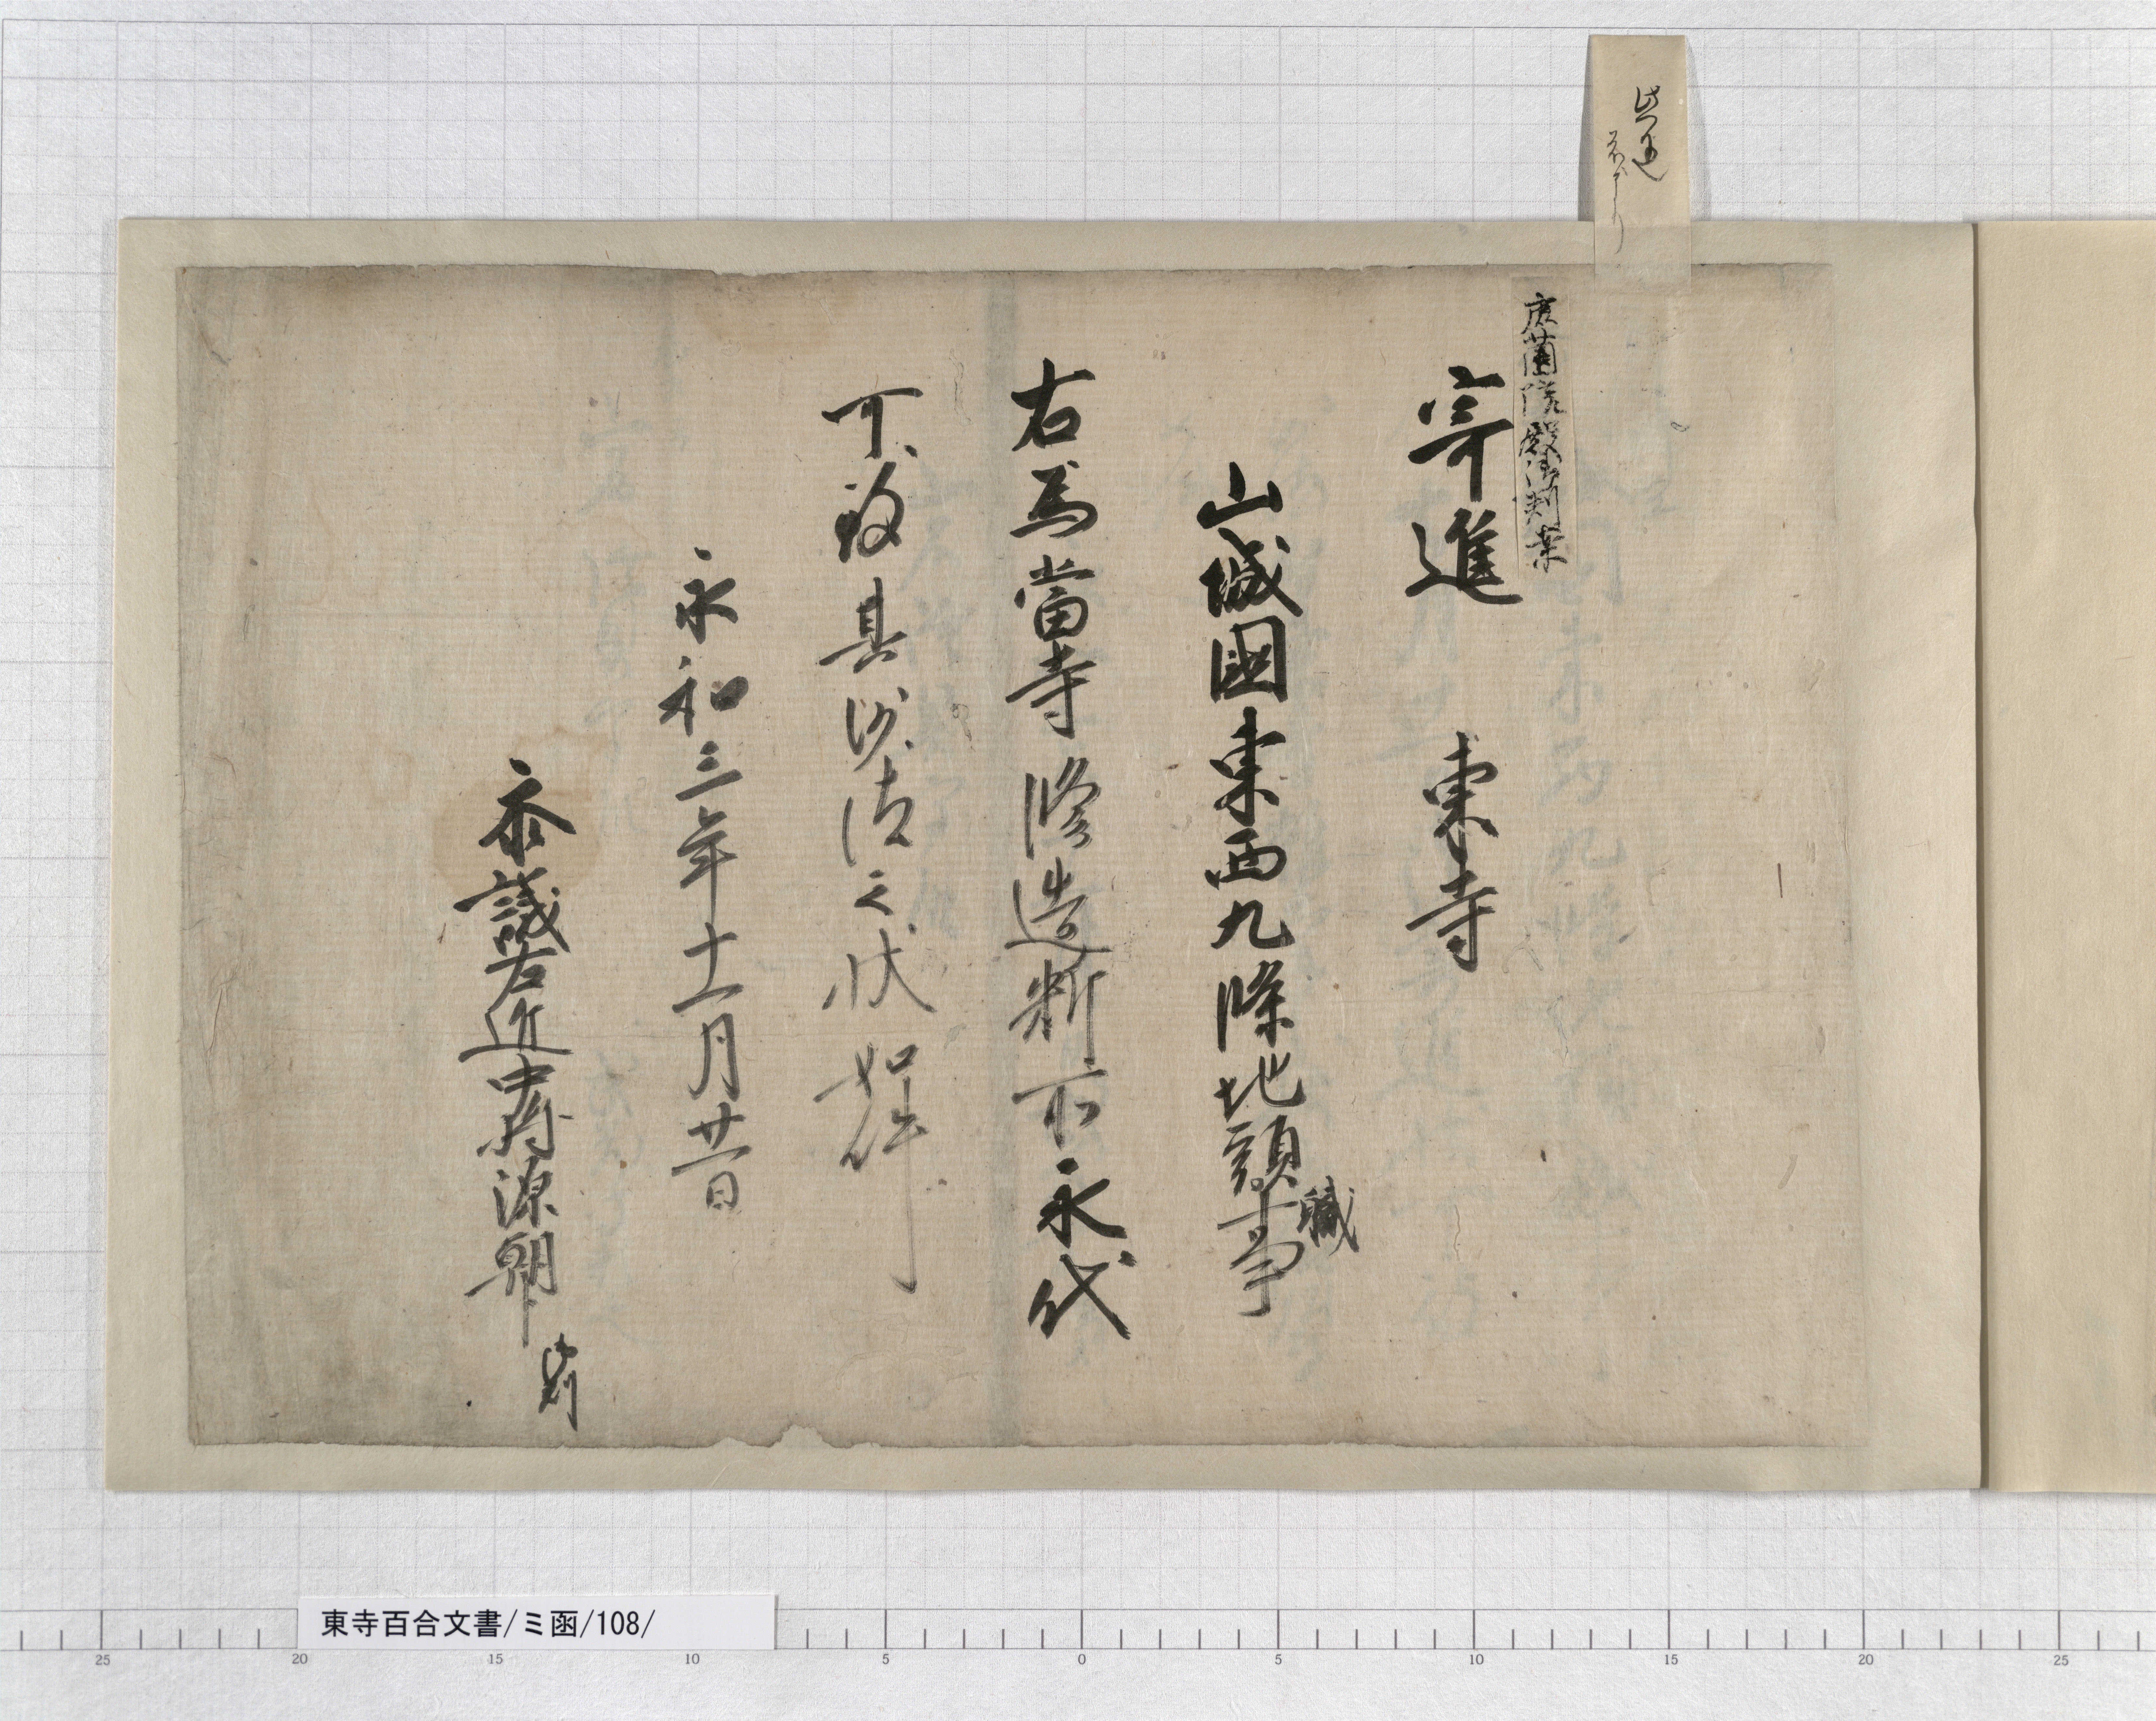 鹿薗院殿御判案
寄進　東寺
山城國東西九條地頭職事
右為當寺修造料所永代
可致其沙汰之状如件
永和三年十一月廿一日
参議右近中将源朝臣 御判
東寺百合文書/ミ函/108/
25 20 15 10 5 0 5 10 15 20 25